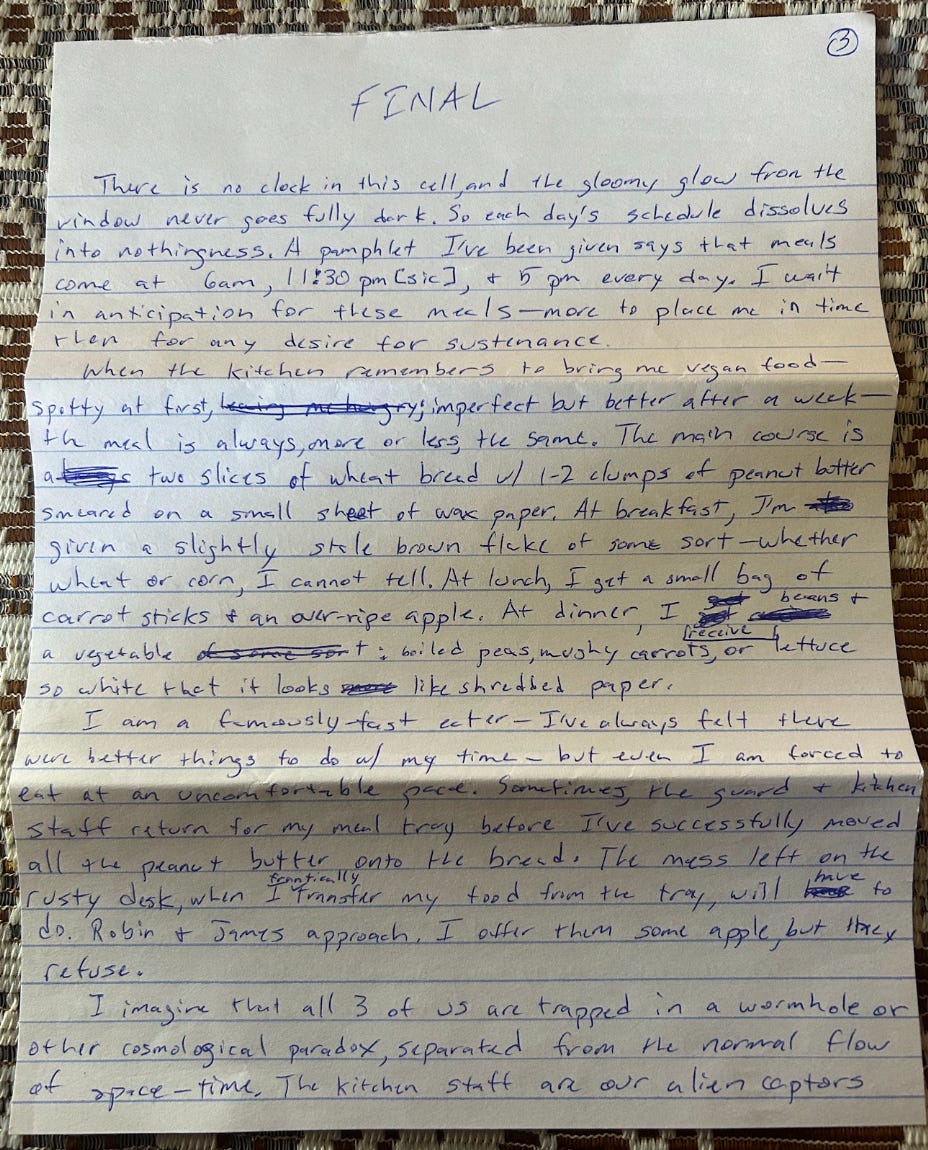 3
FINAL
There is no clock in this cell, and the gloomy glow from the
window never goes fully dark. So each day's schedule dissolves
into nothingness. A pamphlet I've been given says that meals
come at 6am, 11:30 pm [sic], + 5 pm every day. I wait
in anticipation for these meals—more to place me in time
then for any desire for sustenance.
When the kitchen remembers to bring me vegan food—
spotty at first, leaving me hungry; imperfect but better after a week—
th meal is always, more or less, the same. The main course is
a two slices of wheat bread w/ 1-2 clumps of peanut butter
smeared on a small sheet of wax paper. At breakfast, I'm
given a slightly stale brown flake of some sort—whether
wheat or corn, I cannot tell. At lunch, I get a small bag of
carrot sticks + an over-ripe apple. At dinner, I receive beans +
a vegetable of some sort: boiled peas, mushy carrots, or lettuce
so white that it looks like shredded paper.
I am a famously-fast eater—I've always felt there
were better things to do w/ my time—but even I am forced to
eat at an uncomfortable pace. Sometimes, the guard + kitchen
staff return for my meal tray before I've successfully moved
all the peanut butter onto the bread. The mess left on the
rusty desk, when I frantically transfer my food from the tray, will have to
do. Robin + James approach. I offer them some apple, but they
refuse.
I imagine that all 3 of us are trapped in a wormhole or
other cosmological paradox, separated from the normal flow
of space-time. The kitchen staff are our alien captors